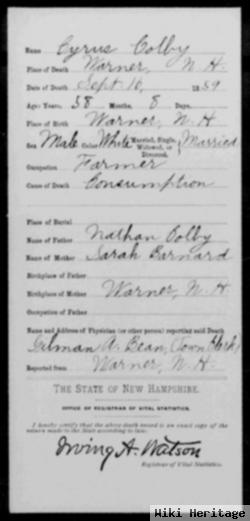 Name Cyrus Colby
Place of Death Warner, N. H.
Date of Death Sept. 10, 1859
Age: Years, 38 Months, 8 Days,
Place of Birth Warner, N. H.
Sex Male Color White Married, Single, Widowed, or Divorced, Married
Occupation Farmer
Cause of Death Consumption
Place of Burial
Name of Father Nathan Colby
Name of Mother Sarah Barnard
Birthplace of Father
Birthplace of Mother Warner, N. H.
Occupation of Father
Name and Address of Physician (or other person) reporting said Death
Gilman A. Bean, (Town Clerk)
Reported from Warner, N. H.
THE STATE OF NEW HAMPSHIRE.
OFFICE OF REGISTRAR OF VITAL STATISTICS.
I hereby certify that the above death record is an exact copy of the
return made to the State according to law.
Irving A. Watson
Registrar of Vital Statistics.
Wiki Heritage